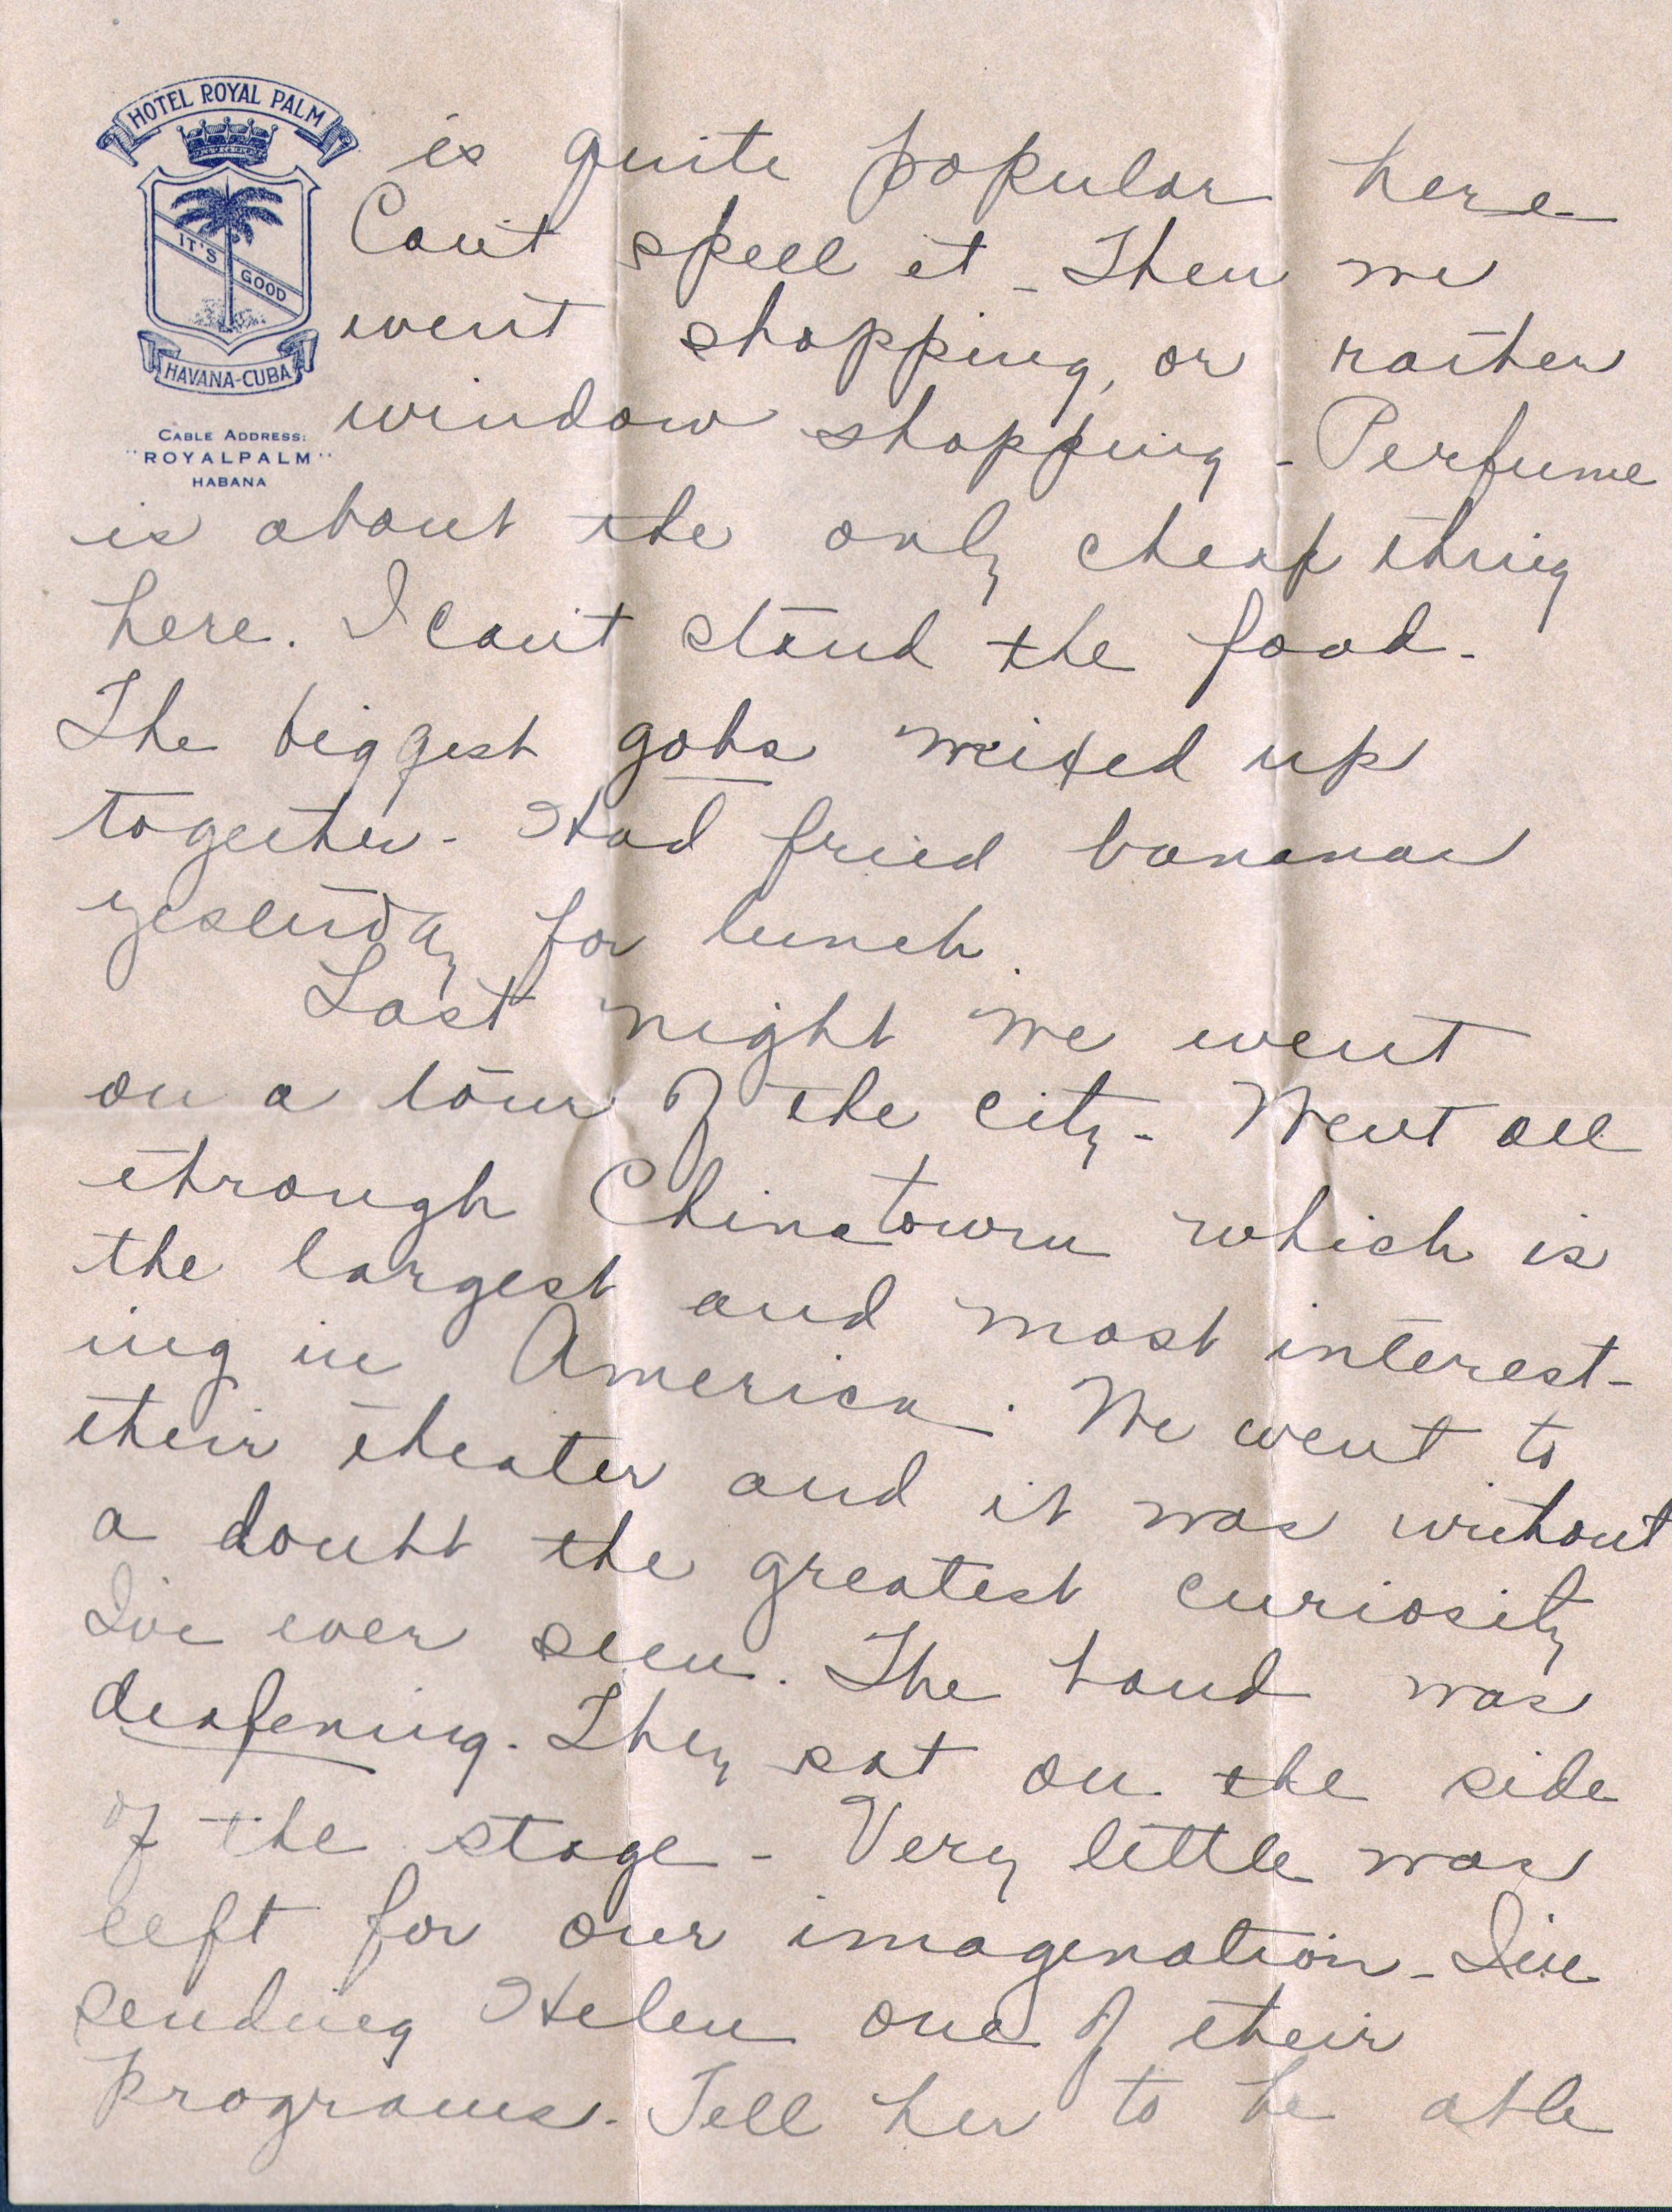 HOTEL ROYAL PALM
IT'S GOOD
HAVANA-CUBA
CABLE ADDRESS:
"ROYALPALM"
HABANA
is quite popular here -
Can't spell it - Then we
went shopping, or rather
window shopping - Perfume
is about the only cheap thing
here. I can't stand the food -
The biggest gobs mixed up
together - Had fried bananas
yesterday for lunch.
Last night we went
on a tour of the city - Went all
through Chinatown which is
the largest and most interest-
ing in America. We went to
their theater and it was without
a doubt the greatest curiosity
I've ever seen. The band was
deafening. They sat on the side
of the stage - Very little was
left for our imagination - I'm
sending Helen one of their
programs. Tell her to be able